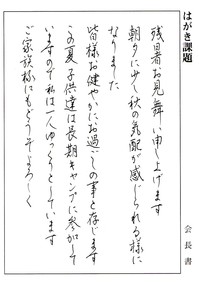 はがき課題
会長書
残暑お見舞い申し上げます
朝夕にゆく秋の気配が感じられる様に
なりました
皆様お健やかにお過ごしの事と存じます
この夏子供達は長期キャンプに参加して
いますので私は一人ゆっくりとしています
ご家族様にもどうぞよろしく